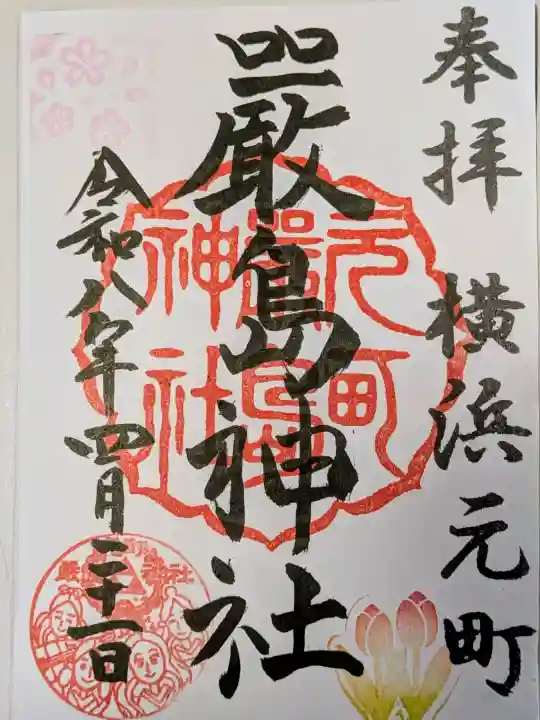 奉拝　横浜元町
嚴島神社
令和八年四月二十一日
元町
嚴島
神社